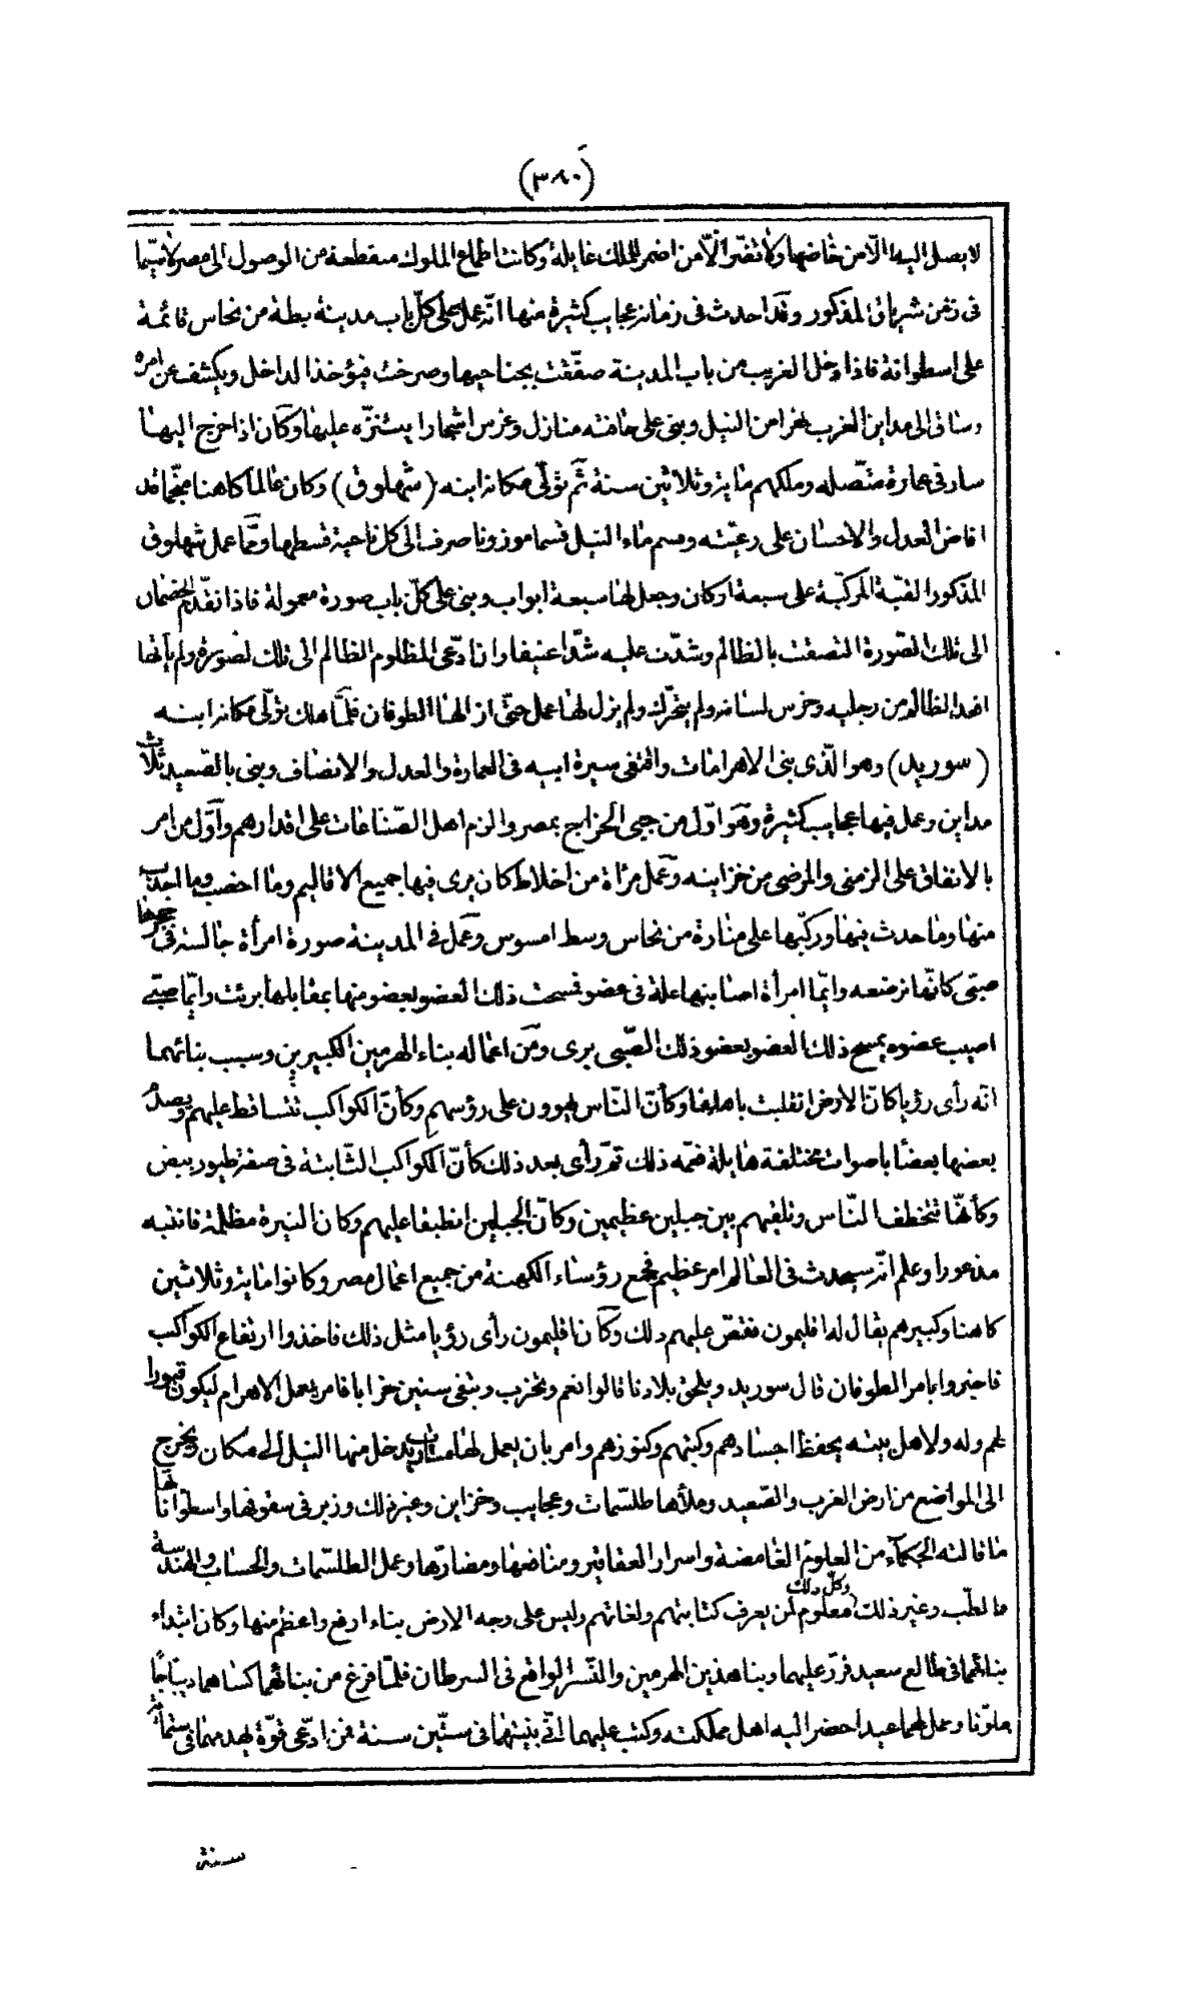 (٣٨٠)
لا يصل اليها الّا من خاضها ولا تضرّ الّا من اضمر للملك غايلة وكانت اطماع الملوك منقطعة من الوصول الى مصر لا سيّما
فى زمن شرياق المذكور وقد احدث فى زمانه عجايب كثيرة منها انّه عمل على كلّ باب مدينة بطة من نحاس قائمة
على اسطوانة فاذا دخل الغريب من باب المدينة صفّقت بجناحيها وصرخت فيؤخذ الداخل ويكشف عن امره
وساق الى مداين الغرب نهرا من النيل وبنى على حافته منازل وغرس اشجارا يتنزّه عليها وكان اذا خرج اليها
سار فى عمارة متّصله وملكهم ماية وثلاثين سنة ثمّ تولّى مكانه ابنه (شهلوق) وكان عالما كاهنا منجّما قد
افاض العدل والاحسان على رعيّته وقسم ماء النيل قسما موزونا صرف الى كل ناحية قسطها وممّا عمل شهلوق
المذكور القبّة المركّبة على سبعة اركان وجعل لها سبعة ابواب وبنى على كلّ باب صورة معمولة فاذا تقدّم الخصمان
الى تلك الصّورة التصقت بالظالم وشدّت عليه شدّا عنيفا وان ادّعى المظلوم الظالم الى تلك الصورة ولم يأتها
اقعد الظالم من رجليه وخرس لسانه ولم يتحرّك ولم يزل لها عمل حتّى ازالها الطوفان فلمّا هلك تولّى مكانه ابنه
(سوريد) وهو الّذى بنى الاهرامات واقتفى سيرة ابيه فى العمارة والعدل والانصاف وبنى بالصّعيد ثلاث
مداين وعمل فيها عجايب كثيرة وهو اوّل من جبى الخراج بمصر والزم اهل الصّناعات على اقدارهم واوّل من امر
بالانفاق على الزمنى والمرضى من خزاينه وعمل مرآة من اخلاط كان يرى فيها جميع الاقاليم وما اخصب وما اجدب
منها وما حدث فيها وركّبها على منارة من نحاس وسط امسوس وعمل فى المدينة صورة امرأة جالسة فى حجرها
صبّى كانّها ترضعه وايّما امرأة اصابها علة فى عضو فمسحت ذلك العضو بعضو منها بمقابلها برئت وايّما صبىّ
اصيب عضوه يمسح ذلك العضو بعضو ذلك الصّبى برى ومن اعماله بناء الهرمين الكبيرين وسبب بنائهما
انّه رأى رؤيا كانّ الارض انقلبت باهلها وكأنّ النّاس يهوون على رؤسهم وكأنّ الكواكب تتساقط عليهم ويصدم
بعضها بعضا باصوات مختلفة هايلة فغمّه ذلك ثمّ رأى بعد ذلك كأنّ الكواكب الثّابتة فى صفة طيور بيض
وكأنّها تتخطف النّاس وتلقيهم بين جبلين عظيمين وكانّ الجبلين انطبقا عليهم وكان النيرة مظلمة فانتبه
مذعورا وعلم انّه سيحدث فى العالم امر عظيم فجمع رؤساء الكهنة من جميع اعمال مصر وكانوا ماية وثلاثين
كاهنا وكبيرهم يقال له افليمون فقصّ عليهم ذلك وكان افليمون رأى رؤيا مثل ذلك فاخذوا ارتفاع الكواكب
فاخبروا بامر الطوفان قال سوريد ويلحق بلادنا قالوا نعم وتخرب وتبقى سنين خرابا فامر بعمل الاهرام ليكون قبورا
لهم وله ولاهل بيته يحفظ اجسادهم وكتبهم وكنوزهم وامر بان يعمل لها مسارب يدخل منها النيل الى مكان ويخرج
الى المواضع من ارض الغرب والصّعيد وملأها طلسّمات وعجايب وخزاين وغير ذلك وزبر فى سقوفها واسطواناتها
ما قالته الحكماء من العلوم الغامضة واسرار العقاقير ومنافعها ومضارّها وعمل الطلسّمات والحساب والهندسة
والطبّ وغير ذلك وكلّ ذلك معلوم لمن يعرف كتابتهم ولغاتهم وليس على وجه الارض بناء ارفع واعظم منها وكان ابتداء
بنائهما فى طالع سعيد فرّ عليهما وبنا هذين الهرمين والنّسر الواقع فى السرطان فلمّا فرغ من بنائهما كساهما ديباجًا
ملوّنا وعمل لهما عيدا حضر اليه اهل مملكته وكتب عليهما انّى بنيتهما فى ستّين سنة فمن ادّعى قوّة يهدمهما فى ستمائة
سنة